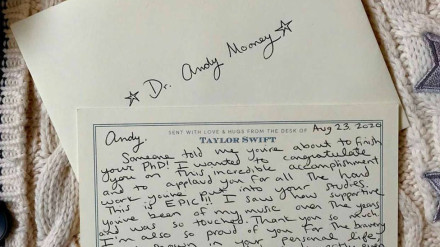 Dr. Andy Mooney
Aug 23 2020
SENT WITH LOVE & HUGS FROM THE DESK OF
TAYLOR SWIFT
Andy,
Someone told me you're about to finish
your PhD! I wanted to congratulate
you on this incredible accomplishment
and to applaud you for all the hard
work you've put into your studies.
This is EPIC!! I saw how supportive
you've been of my music over the years
and was so touched. Thank you so much.
I'm also so proud of you for the bravery
in your personal life